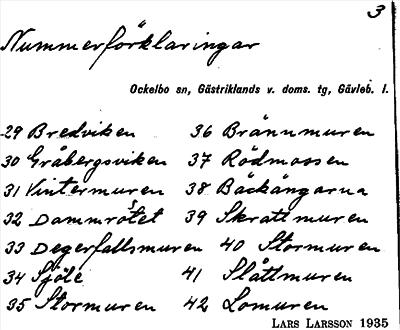 3
Nummerförklaringar
Ockelbo sn, Gästriklands v. doms. tg, Gävleb. l.
29 Bredviken 36 Brännmuren
30 Gråbergsviken 37 Rödmossen
31 Vintermuren 38 Bäckängarna
32 Dammrötet 39 Skrattmuren
33 Degerfallsmuren 40 Stormuren
34 Sjöle 41 Slåttmuren
35 Stormuren 42 Lomuren
LARS LARSSON 1935